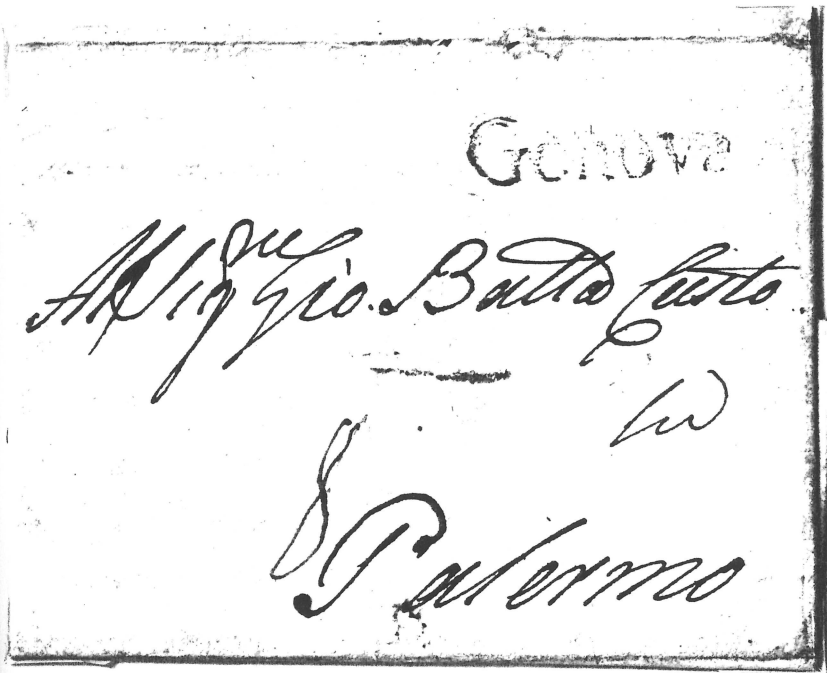 Genova
Al Sig.re Gio. Batta Custo
8
Palermo